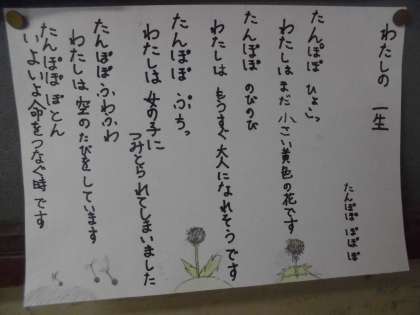 わたしの 一生
たんぽぽ ぽぽぽ
たんぽぽ ひょこっ
わたしはまだ 小さい黄色の花です
たんぽぽ のびのび
わたしは もうすぐ大人になれそうです
たんぽぽ ぷちっ
わたしは 女の子に
つみとられてしまいました
たんぽぽ ふわふわ
わたしは 空のたびをしています
たんぽぽ ぽとん
いよいよ命をつなぐ時です